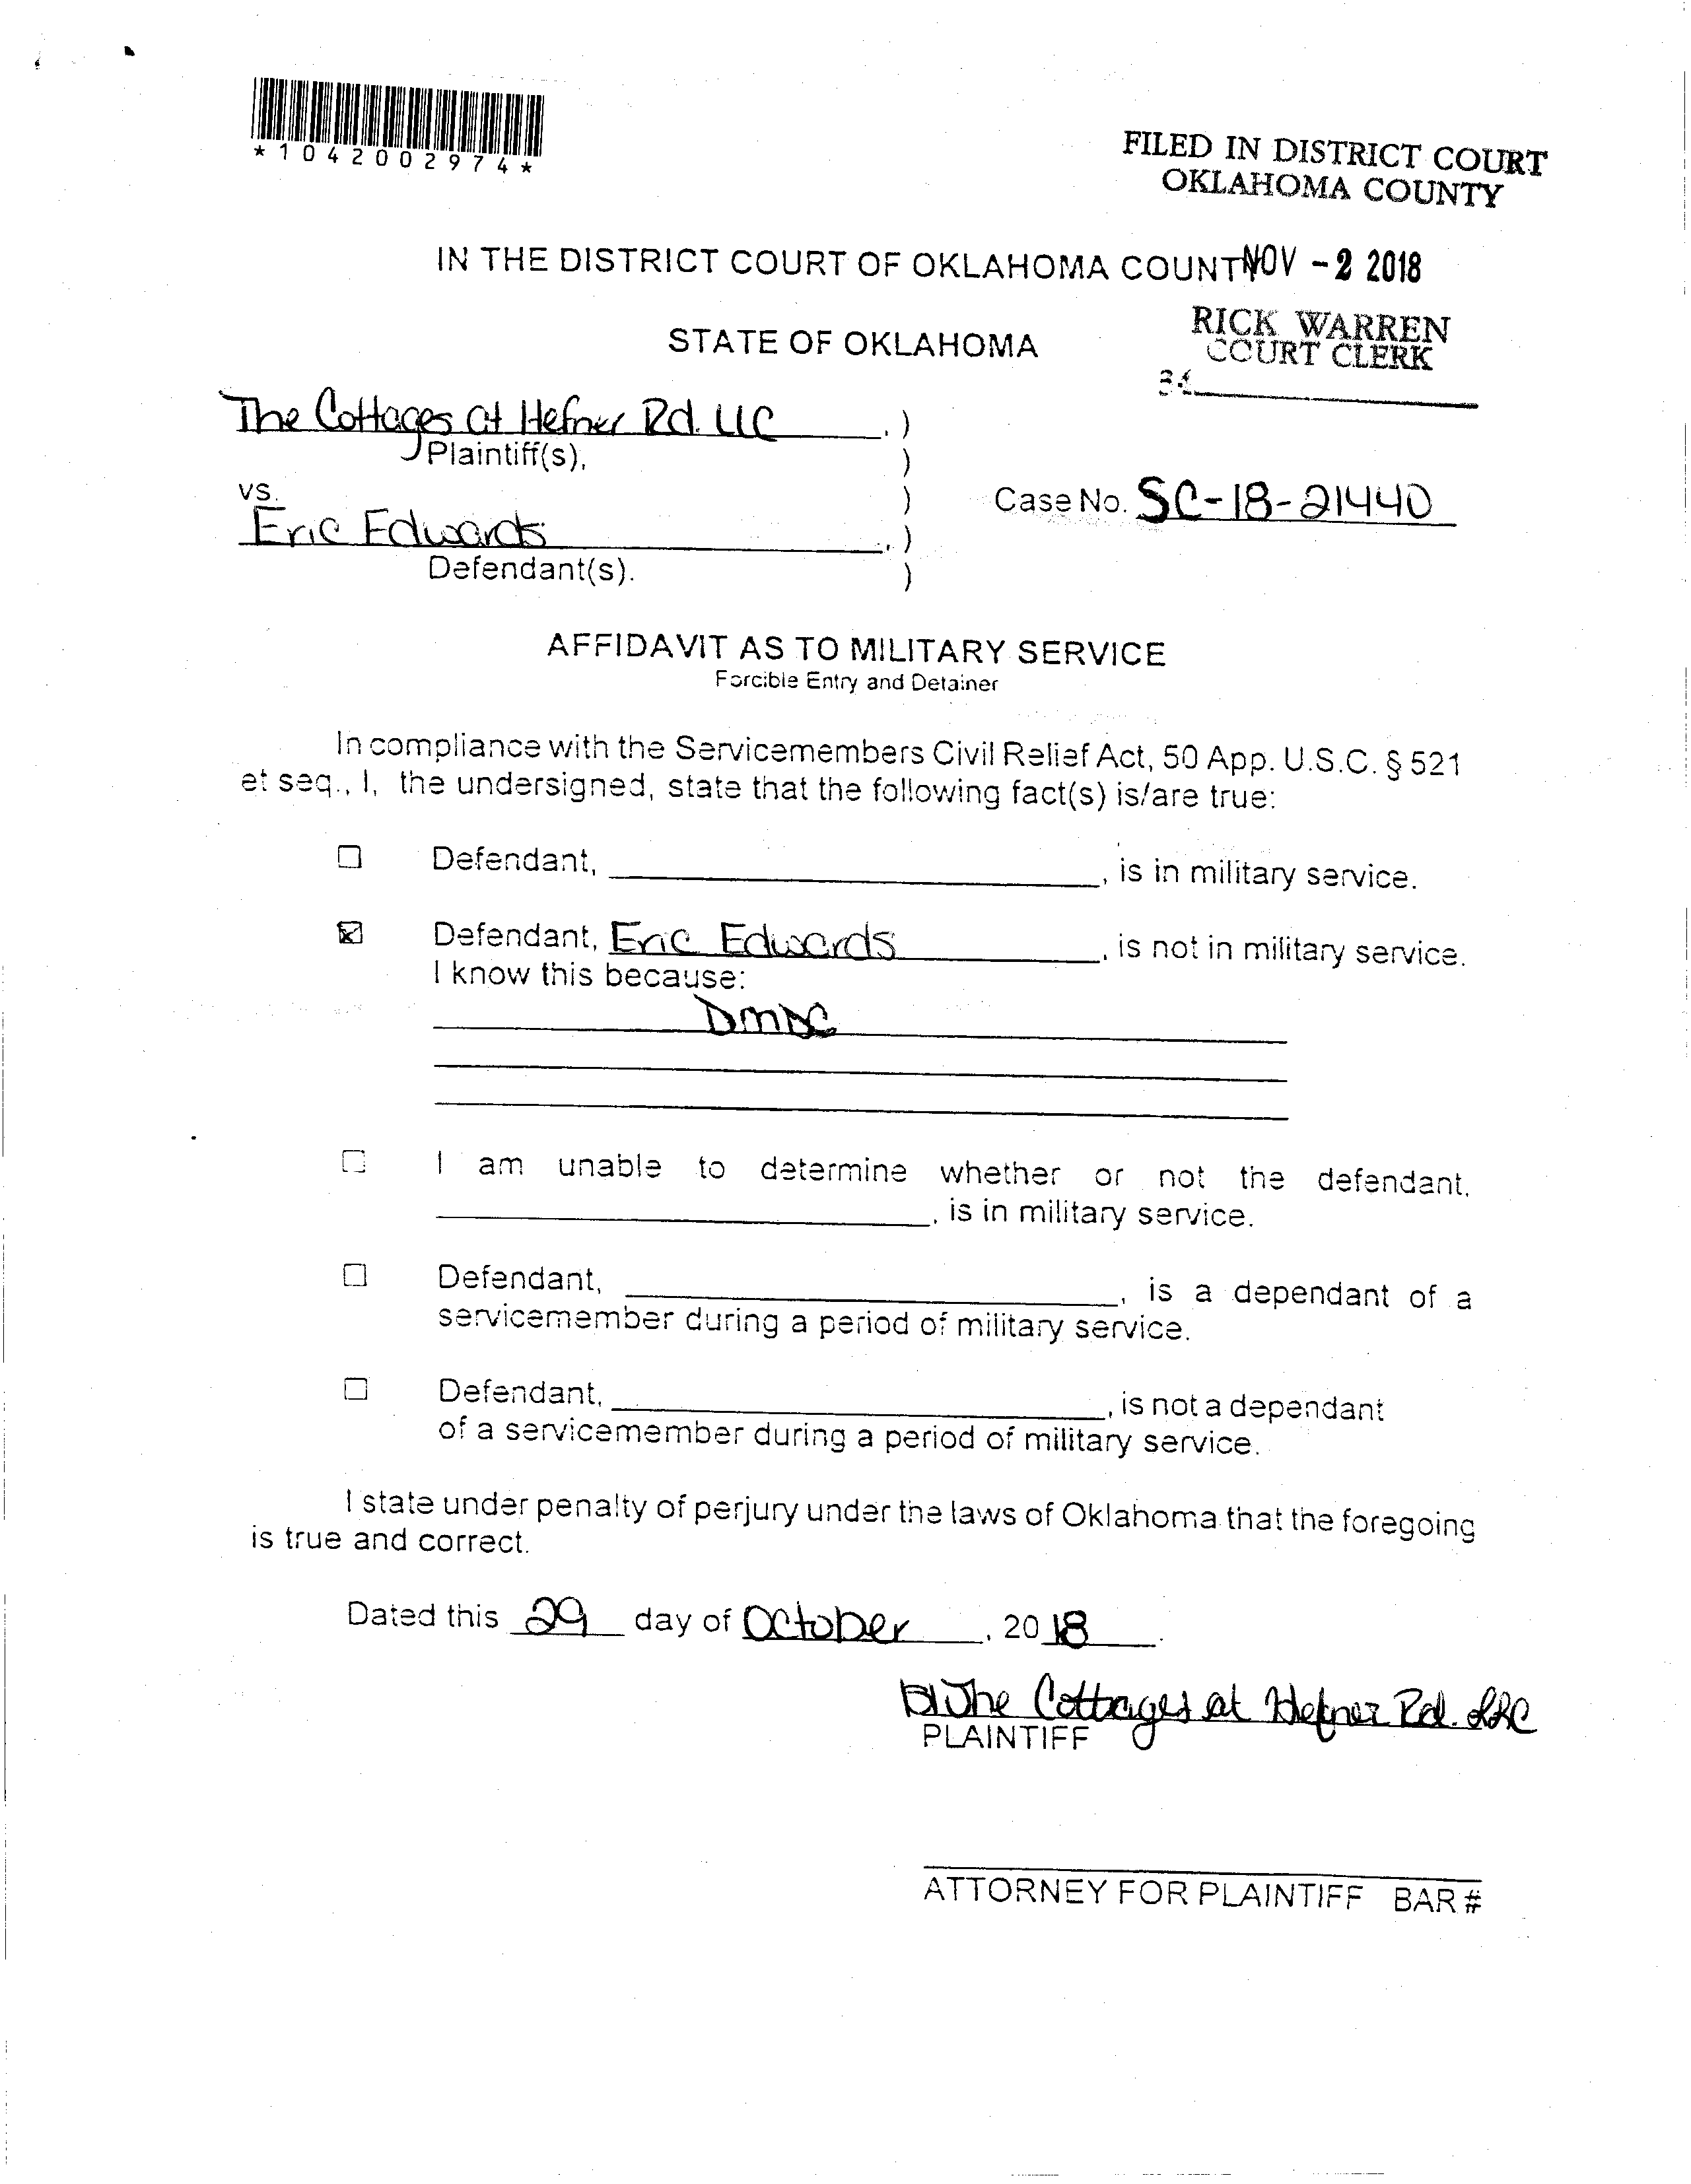 *1042002974*
FILED IN DISTRICT COURT
OKLAHOMA COUNTY
IN THE DISTRICT COURT OF OKLAHOMA COUNT NOV - 2 2018
STATE OF OKLAHOMA
RICK WARREN
COURT CLERK
The Cottages at Hefner Rd. LLC , )
Plaintiff(s), )
vs. )
Case No. SC-18-21440
Eric Edwards , )
Defendant(s). )
AFFIDAVIT AS TO MILITARY SERVICE
Forcible Entry and Detainer
In compliance with the Servicemembers Civil Relief Act, 50 App. U.S.C. § 521
et seq., I, the undersigned, state that the following fact(s) is/are true:
☐ Defendant, ____, is in military service.
☒ Defendant, Eric Edwards, is not in military service.
I know this because:
DMDC
☐ I am unable to determine whether or not the defendant,
____, is in military service.
☐ Defendant, ____, is a dependant of a
servicemember during a period of military service.
☐ Defendant, ____, is not a dependant
of a servicemember during a period of military service.
I state under penalty of perjury under the laws of Oklahoma that the foregoing
is true and correct.
Dated this 29 day of October, 2018.
The Cottages at Hefner Rd. LLC
PLAINTIFF
ATTORNEY FOR PLAINTIFF BAR #